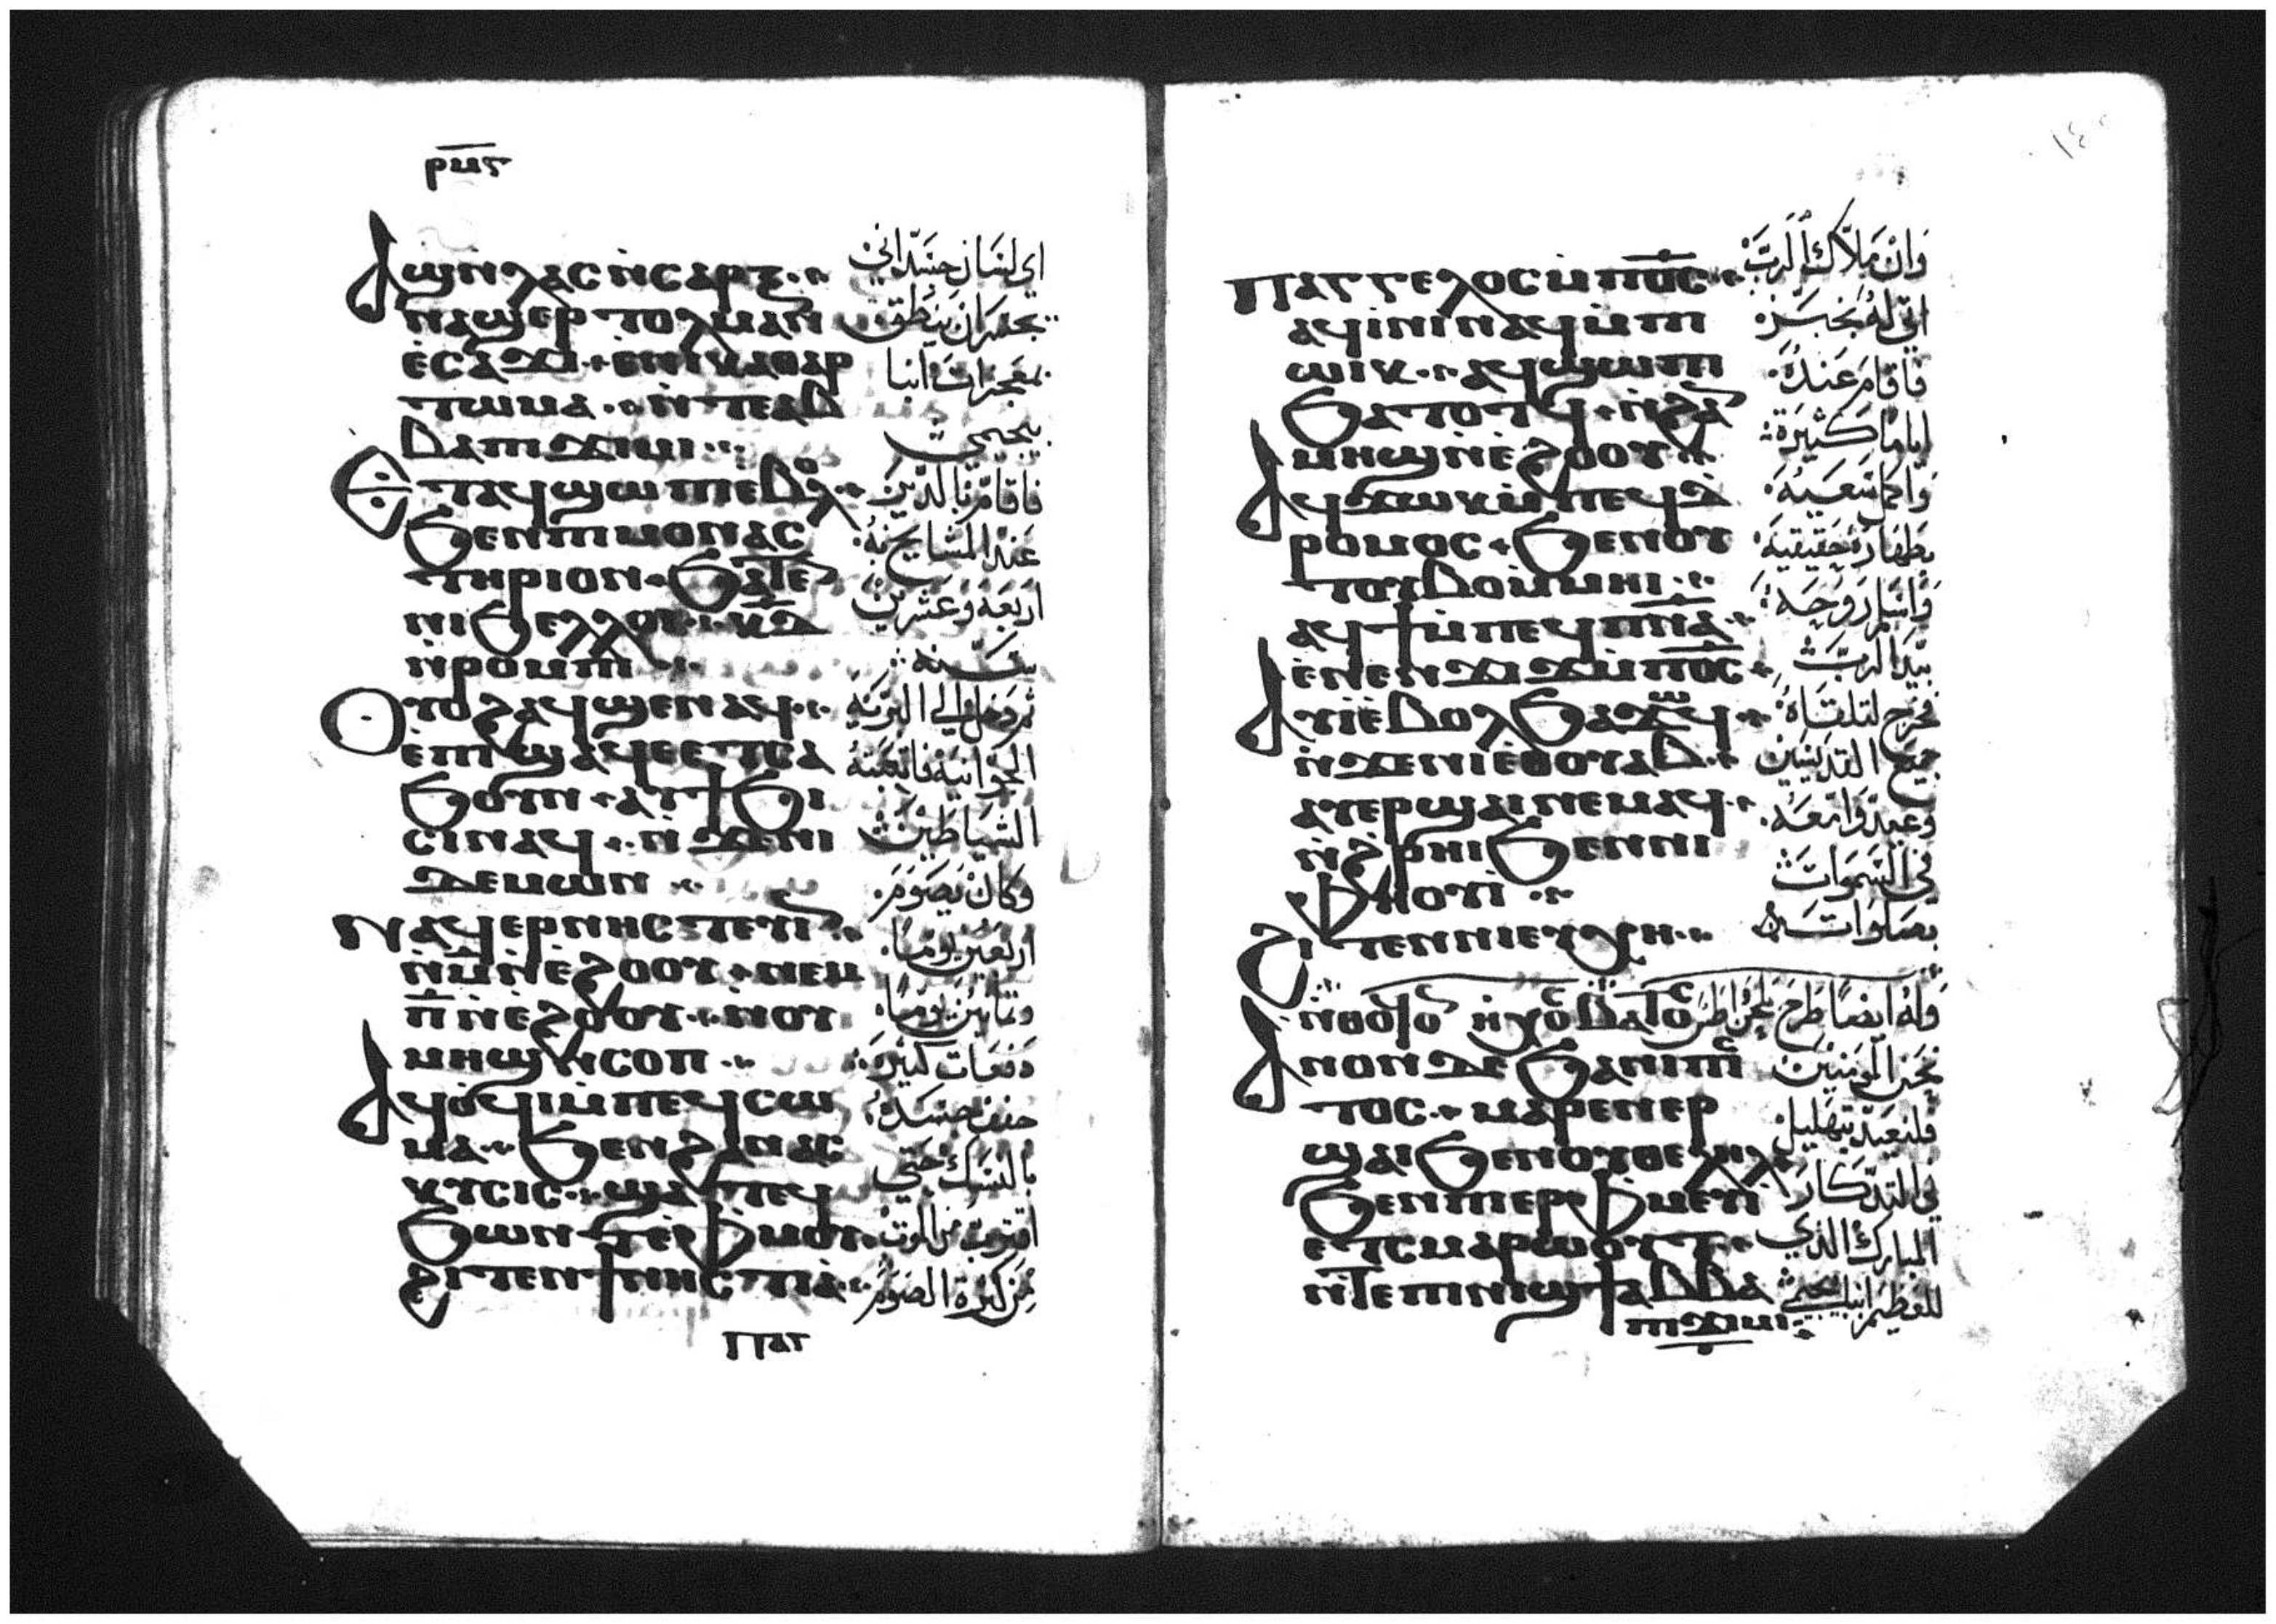 ⲣⲙⲋ
Ⲁϣ ⲛ̀ⲗⲁⲥ ⲛ̀ⲥⲁⲣⲝ
ⲛⲁϣⲉⲣⲧⲟⲗⲙⲁⲛ
ⲉ̀ⲥⲁϫⲓ ⲉ̀ⲛⲓⲕⲁⲑⲁⲣ
ⲧⲱⲙⲁ ⲛ̀ⲧⲉ ⲁⲃ
ⲃⲁ ⲡⲓϫⲓⲙⲓ
Ⲉⲧⲁϥϣⲱⲡⲓ ⲉⲃⲟⲗ
ϧⲉⲛ ⲡⲓⲙⲟⲛⲁⲥ
ⲧⲏⲣⲓⲟⲛ ϧⲁⲧⲉ
ⲛⲓϧⲉⲗⲗⲟⲓ ⲕⲇ
ⲛ̀ⲣⲟⲙⲡⲓ
Ⲟⲩⲟϩ ⲁϥϣⲉⲛⲁϥ
ⲉ̀ⲡϣⲁϥⲉ ⲉⲧⲥⲁ
ϧⲟⲩⲛ ⲁⲩϯϧⲓ
ⲥⲓ ⲛⲁϥ ⲛ̀ϫⲉ ⲛⲓ
ⲇⲉⲙⲱⲛ
Ⲛⲁϥⲉⲣⲛⲏⲥⲧⲉⲩⲓⲛ
ⲙ̅ ⲛ̀ⲉ̀ϩⲟⲟⲩ ⲛⲉⲙ
ⲡ̅ ⲛ̀ⲉ̀ϩⲟⲟⲩ ⲛ̀ⲟⲩ
ⲙⲏϣ ⲛ̀ⲥⲟⲡ
Ⲁϥⲟ̀ϥⲓ ⲙ̀ⲡⲉϥⲥⲱ
ⲙⲁ ϧⲉⲛ ϩⲁⲛⲁⲥ
ⲕⲩⲥⲓⲥ ϣⲁⲛⲧⲉϥ
ϧⲱⲛⲧ ⲉ̀ⲫ̀ⲙⲟⲩ
ϩⲓⲧⲉⲛ ϯⲛⲏⲥⲧⲓⲁ̀
ⲡⲁⲅ
اي لسان جسداني
يجسر ان ينطق
بمعجزات انبا
بيجيمي
عند المشايخ
اربعة وعشرين
سنه
ثم دخل الي البرية
الجوانية فاتعبته
الشياطين
وكان يصوم
اربعين يوما
وثمانين يوما
دفعات كثيرة
جفف جسده
بالنسك حتي
اقترب من الموت
من كثرة الصوم
Ⲡⲁⲅⲅⲉⲗⲟⲥ ⲙ̀ⲡ̅ⲟ̅ⲥ̅
ⲁϥⲓ̀ⲛⲓ ⲛⲁϥ ⲙ̀ⲡⲓ
ⲱⲓⲕ ⲁϥϣⲱⲡⲓ
ϧⲁⲧⲟⲧϥ ⲛ̀ϩⲁ
ⲙⲏϣ ⲛ̀ⲉ̀ϩⲟⲟⲩ
Ⲁϥϫⲱⲕ ⲙ̀ⲡⲉϥⲇ
ⲣⲟⲙⲟⲥ ϧⲉⲛ ⲟⲩ
ⲧⲟⲩⲃⲟ ⲙ̀ⲙⲏⲓ
ⲁϥϯ ⲙ̀ⲡⲉϥⲡ̅ⲛ̅ⲁ̅
ⲉ̀ⲛⲉⲛϫⲓϫ ⲙ̀ⲡ̅ⲟ̅ⲥ̅
Ⲁⲩⲓ̀ ⲉⲃⲟⲗ ϧⲁϫⲱϥ
ⲛ̀ϫⲉ ⲛⲓⲉⲑⲟⲩⲁⲃ
ⲁⲩⲉⲣϣⲁⲓ ⲛⲉⲙⲁϥ
ⲛ̀ϩ̀ⲣⲏⲓ ϧⲉⲛ ⲛⲓ
ⲫⲏⲟⲩⲓ̀
Ϩⲓⲧⲉⲛ ⲛⲓⲉⲩⲭⲏ
Ⲁⲛⲟⲛ ⲇⲉ ϧⲁ ⲛⲓⲡⲓⲥ
ⲧⲟⲥ ⲙⲁⲣⲉⲛⲉⲣ
ϣⲁⲓ ϧⲉⲛ ⲟⲩⲑⲉⲗⲏⲗ
ϧⲉⲛ ⲡⲓⲉⲣⲫ̀ⲙⲉⲩⲓ̀
ⲉⲧⲥⲙⲁⲣⲱⲟⲩⲧ
ⲛ̀ⲧⲉ ⲡⲓⲛⲓϣϯ ⲁⲃⲃⲁ
ⲡⲓϫⲓⲙⲓ
وان ملاك الرب
اتي له بخبز
فاقام عنده
اياما كثيرة
واكمل سعيه
بطهارة حقيقية
واسلم روحه
بيد الرب
فخرج لتلقاه
جميع القديسين
وعيدوا معه
في السموات
بصلواته
وله ايضا طرح
نحن المومنين
فلنعيد بتهليل
في التذكار
المبارك الذي
للعظيم انبا بيجيمي